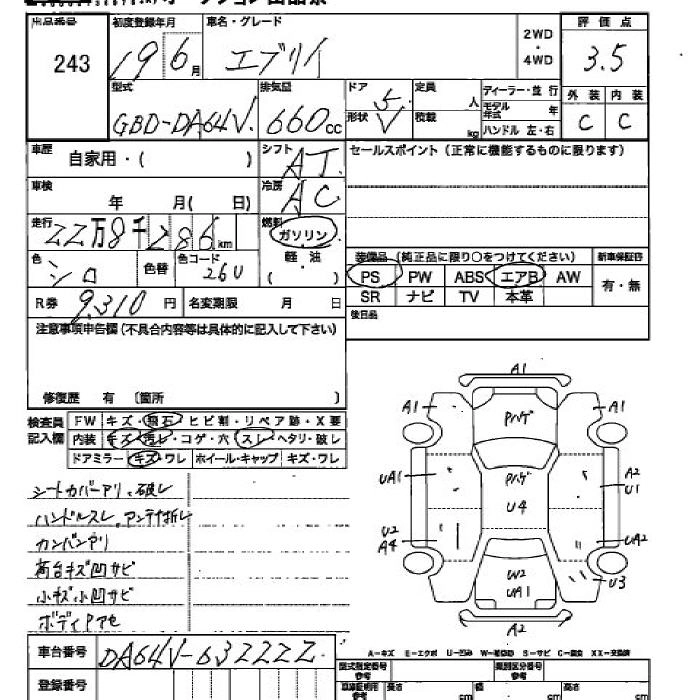 出品番号 初度登録年月 車名・グレード 評価点
243 19 6月 エブリイ 2WD・4WD 3.5
型式 排気量 ドア 定員 ディーラー・並行 外装 内装
GBD-DA64V 660cc 5 人 モデル年式 年 C C
形状 V 積載 kg ハンドル 左・右
車歴 自家用・( ) シフト AT セールスポイント (正常に機能するものに限ります)
車検 年 月( 日) 冷房 AC
走行 22万8千286km 燃料 ガソリン
軽・油
( )
色 シロ 色替 色コード 26U
装備品 (純正品に限り○をつけてください) 新車保証書
PS PW ABS エアB AW 有・無
SR ナビ TV 本革
R券 9,310円 名変期限 月 日 後日品
注意事項申告欄(不具合内容等は具体的に記入して下さい)
修復歴 有 〔箇所 〕
検査員記入欄 FW キズ・飛石・ヒビ割・リペア跡・X要
内装 キズ・汚レ・コゲ・穴・スレ・ヘタリ・破レ
ドアミラー キズ・ワレ ホイール・キャップ キズ・ワレ
シートカバーアリ、破レ
ハンドルスレ、アンテナ折レ
カンバンアリ
荷台キズ凹サビ
小キズ小凹サビ
ボディPアセ
A1
A1 Pハゲ A1
UA1 Pハゲ A2
U1
U4
U2
A4 UA2
W2
UA1 U3
A2
A-キズ E-エクボ U-凹み W-補修跡 S-サビ C-腐食 XX-交換済
車台番号 DA64V-632222
登録番号
型式指定番号 参考 類別区分番号 参考
車庫証明用 参考 長さ cm 幅 cm 高さ cm